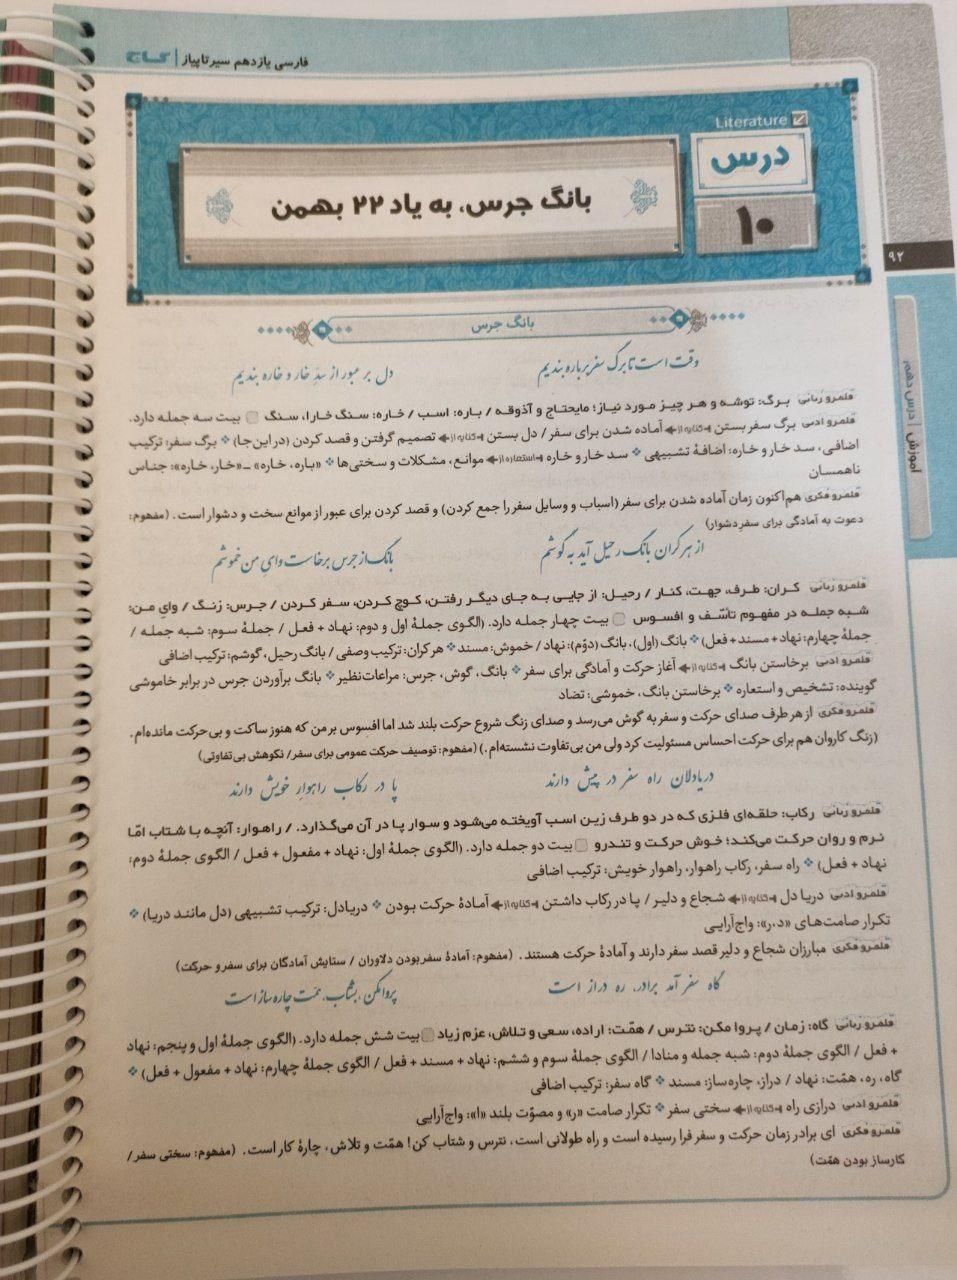 فارسی یازدهم سیر تا پیاز | گاج
Literature
درس
۱۰
بانگ جرس، به یاد ۲۲ بهمن
۹۲
آموزش | درس دهم
بانگ جرس
وقت است تا برگ سفر بر باره بندیم
دل بر عبور از سدّ خار و خاره بندیم
قلمرو زبانی برگ: توشه و هر چیز مورد نیاز؛ مایحتاج و آذوقه / باره: اسب / خاره: سنگ خارا، سنگ بیت سه جمله دارد.
قلمرو ادبی برگ سفر بستن کنایه از آماده شدن برای سفر / دل بستن کنایه از تصمیم گرفتن و قصد کردن (در این‌جا) برگ سفر: ترکیب
اضافی، سد خار و خاره: اضافهٔ تشبیهی سد خار و خاره استعاره از موانع، مشکلات و سختی‌ها «باره، خاره» ـ «خار، خاره»: جناس
ناهمسان
قلمرو فکری هم‌اکنون زمان آماده شدن برای سفر (اسباب و وسایل سفر را جمع کردن) و قصد کردن برای عبور از موانع سخت و دشوار است. (مفهوم:
دعوت به آمادگی برای سفرِ دشوار)
از هر کران بانگ رحیل آید به گوشم
بانگ از جرس برخاست وای من خموشم
قلمرو زبانی کران: طرف، جهت، کنار / رحیل: از جایی به جای دیگر رفتن، کوچ کردن، سفر کردن / جرس: زنگ / وایِ من:
شبه جمله در مفهوم تأسّف و افسوس بیت چهار جمله دارد. (الگوی جملهٔ اول و دوم: نهاد + فعل / جملهٔ سوم: شبه جمله /
جملهٔ چهارم: نهاد + مسند + فعل) بانگ (اول)، بانگ (دوّم): نهاد / خموش: مسند هر کران: ترکیب وصفی / بانگ رحیل، گوشم: ترکیب اضافی
قلمرو ادبی برخاستن بانگ کنایه از آغاز حرکت و آمادگی برای سفر بانگ، گوش، جرس: مراعات‌نظیر بانگ برآوردن جرس در برابر خاموشی
گوینده: تشخیص و استعاره برخاستن بانگ، خموشی: تضاد
قلمرو فکری از هر طرف صدای حرکت و سفر به گوش می‌رسد و صدای زنگ شروع حرکت بلند شد اما افسوس بر من که هنوز ساکت و بی‌حرکت مانده‌ام.
(زنگ کاروان هم برای حرکت احساس مسئولیت کرد ولی من بی‌تفاوت نشسته‌ام.) (مفهوم: توصیف حرکت عمومی برای سفر / نکوهش بی‌تفاوتی)
دریادلان راه سفر در پیش دارند
پا در رکاب راهوار خویش دارند
قلمرو زبانی رکاب: حلقه‌ای فلزی که در دو طرف زین اسب آویخته می‌شود و سوار پا در آن می‌گذارد. / راهوار: آنچه با شتاب امّا
نرم و روان حرکت می‌کند؛ خوش حرکت و تندرو بیت دو جمله دارد. (الگوی جملهٔ اول: نهاد + مفعول + فعل / الگوی جملهٔ دوم:
نهاد + فعل) راه سفر، رکاب راهوار، راهوار خویش: ترکیب اضافی
قلمرو ادبی دریا دل کنایه از شجاع و دلیر / پا در رکاب داشتن کنایه از آمادهٔ حرکت بودن دریادل: ترکیب تشبیهی (دل مانند دریا)
تکرار صامت‌های «د، ر»: واج‌آرایی
قلمرو فکری مبارزان شجاع و دلیر قصد سفر دارند و آمادهٔ حرکت هستند. (مفهوم: آمادهٔ سفر بودن دلاوران / ستایش آمادگان برای سفر و حرکت)
گاه سفر آمد برادر، ره دراز است
پروا مکن، بشتاب، همت چاره ساز است
قلمرو زبانی گاه: زمان / پروا مکن: نترس / همّت: اراده، سعی و تلاش، عزم زیاد بیت شش جمله دارد. (الگوی جملهٔ اول و پنجم: نهاد
+ فعل / الگوی جملهٔ دوم: شبه جمله و منادا / الگوی جملهٔ سوم و ششم: نهاد + مسند + فعل / الگوی جملهٔ چهارم: نهاد + مفعول + فعل)
گاه، ره، همّت: نهاد / دراز، چاره‌ساز: مسند گاه سفر: ترکیب اضافی
قلمرو ادبی درازی راه کنایه از سختی سفر تکرار صامت «ر» و مصوّت بلند «ا»: واج‌آرایی
قلمرو فکری ای برادر زمان حرکت و سفر فرا رسیده است و راه طولانی است، نترس و شتاب کن! همّت و تلاش، چارهٔ کار است. (مفهوم: سختی سفر /
کارساز بودن همّت)